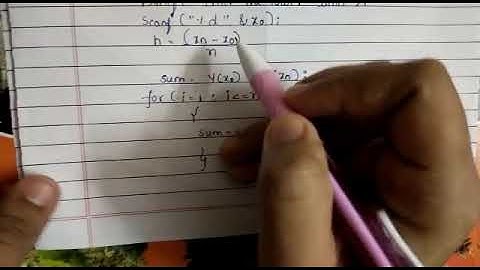 scanf ("%d" &x0);
h = (xn - x0)
n
sum = y(x0) (xn);
for (i=1; i<=
{
sum=
}